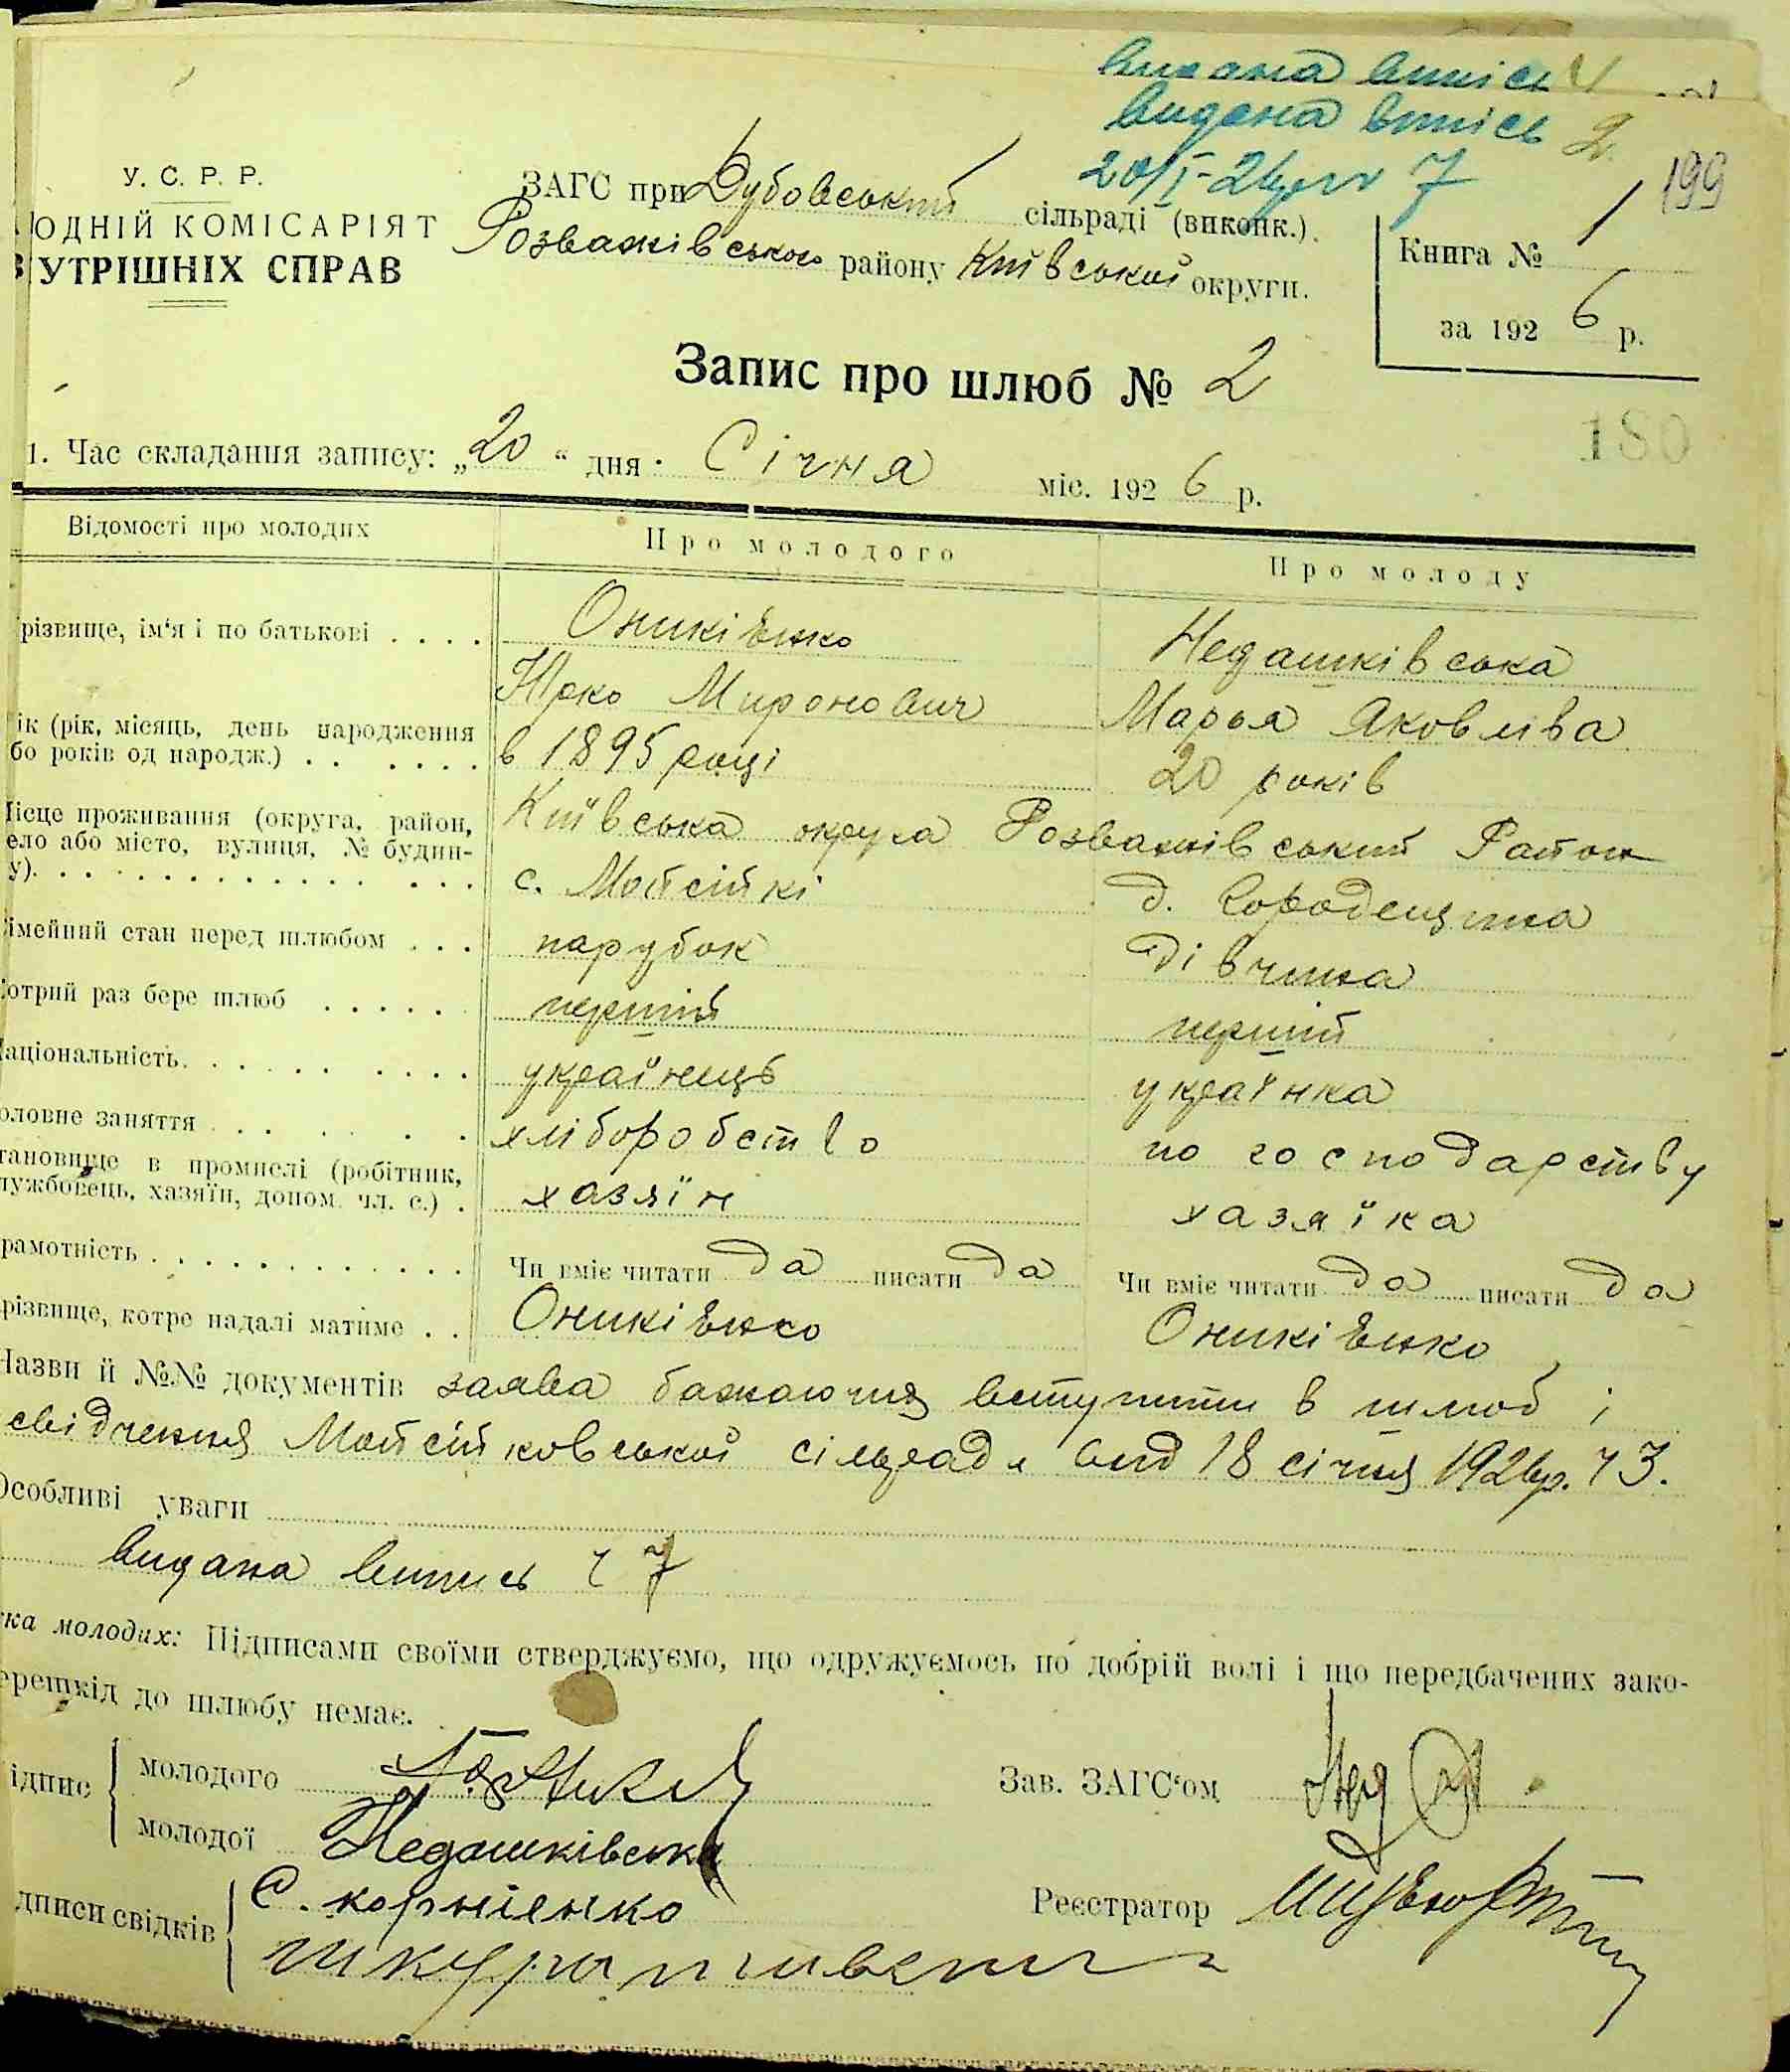 видана випісь
видана випісь 2
20/I-26 р 7
199
У. С. Р. Р.
ОДНІЙ КОМІСАРІЯТ
УТРІШНІХ СПРАВ
ЗАГС при Дубовський сільраді (виконк.).
Розважівського району Київської округи.
Книга № 1
за 1926 р.
Запис про шлюб № 2
180
1. Час складання запису: „20“ дня Січня міс. 1926 р.
Відомості про молодих
Про молодого
Про молоду
різвище, ім'я і по батькові
Оникіенко
Недашківська
Юрко Миронович
Марья Яковліва
ік (рік, місяць, день народження
бо років од народж.)
в 1895 році
20 років
ісце проживання (округа, район,
ело або місто, вулиця, № будин-
у).
Київська округа Розважівський Район
с. Мойсійкі
д. Городещина
імейний стан перед шлюбом
парубок
дівчина
отрий раз бере шлюб
перший
перший
аціональність
українець
українка
оловне заняття
хліборобство
по господарству
тановище в промислі (робітник,
лужбовець, хазяїн, допом. чл. с.)
хазяїн
хазяїка
рамотність
Чи вміє читати да писати да
Чи вміє читати да писати да
різвище, котре надалі матиме
Оникіенко
Оникіенко
Назви й №№ документів заява бажаючих вступити в шлюб і
свідчення Мойсійковської сільради від 18 січня 1926р. ч 3.
Особливі уваги
видана випись ч 7
ка молодих: Підписами своїми стверджуємо, що одружуємось по добрій волі і що передбачених зако-
ерешкід до шлюбу немає.
ідпис
молодого
Зав. ЗАГС'ом
молодої Недашківська
дписи свідків
С. корніенко
Реєстратор